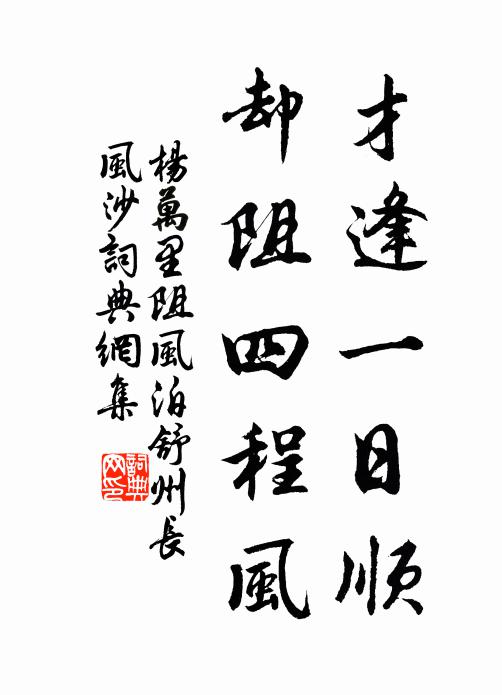 才逢一日順
却阻四程風
楊萬里阻風泊舒州長
風沙詞典網集
詞典網印